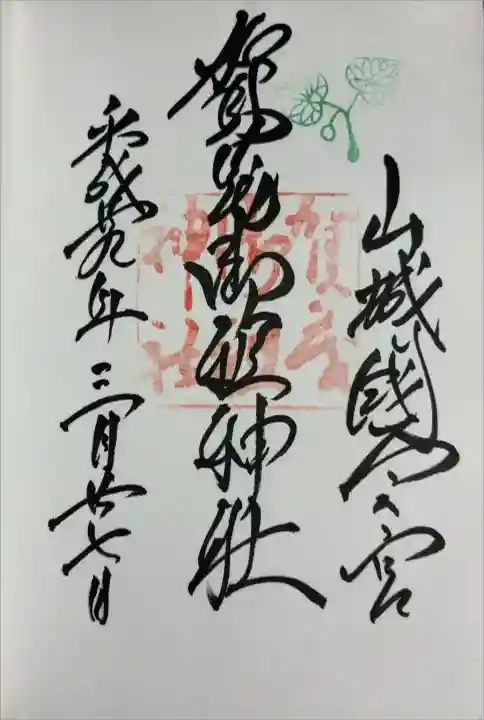 山城國一之宮
賀茂御祖神社
平成廿九年三月廿七日
賀茂
御祖
神社